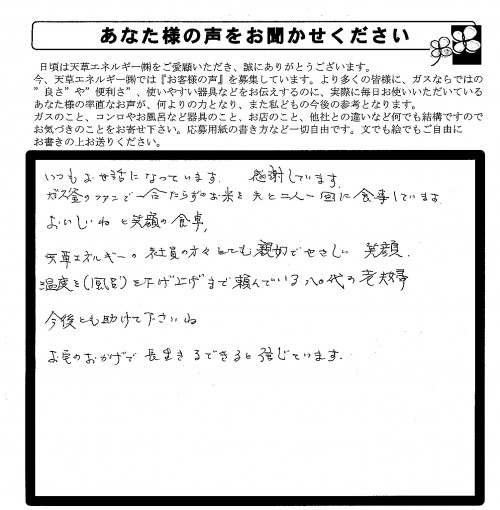 あなた様の声をお聞かせください
日頃は天草エネルギー㈱をご愛顧いただき、誠にありがとうございます。
今、天草エネルギー㈱では『お客様の声』を募集しています。より多くの皆様に、ガスならではの
”良さ”や”便利さ”、使いやすい器具などをお伝えするのに、実際に毎日お使いいただいている
あなた様の率直なお声が、何よりの力となり、また私どもの今後の参考となります。
ガスのこと、コンロやお風呂など器具のこと、お店のこと、他社との違いなど何でも結構ですので
お気づきのことをお寄せ下さい。応募用紙の書き方など一切自由です。文でも絵でもご自由に
お書きの上お送りください。
いつもお世話になっています。感謝しています。
ガス釜のファンで一合たらずのお米を夫と二人一回に食事しています
おいしいねと笑顔の食卓、
天草エネルギーの社員の方々とても親切でやさしい笑顔.
温度を(風呂)を下げ上げまで頼んでいる八〇代の老夫婦
今後とも助けて下さいね
お宅のおかげで長生きるできると信じています.